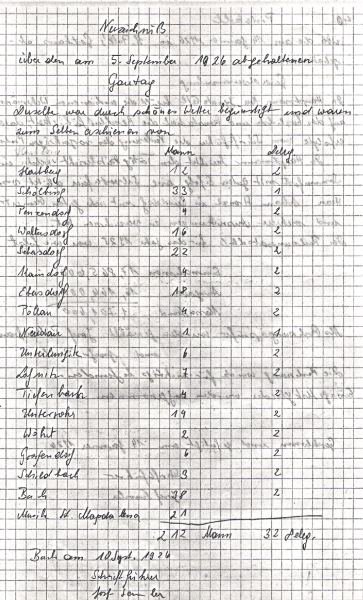 Verzeichniß
über den am 5. September 1926 abgehaltenen
Gautag
Derselbe war durch schönes Wetter begünstigt und waren
zum Selben erschienen von
Mann Deleg
Hartberg 12 2
Schölbing 33 1
Penzendorf 4 2
Waltersdorf 16 2
Sebersdorf 22 2
Kaindorf 4 2
Ebersdorf 18 2
Pöllau 4 2
Neustift 1 1
Unterlungitz 6 2
Lafnitz 7 2
Tiefenbach 4 2
Unterrohr 19 2
Wört 2 2
Grafendorf 6 2
Schildbach 3 2
Buch 28 2
Musik St. Magdalena 21
212 Mann 32 Deleg.
Buch am 10 Sept. 1926
Schriftführer
Josf